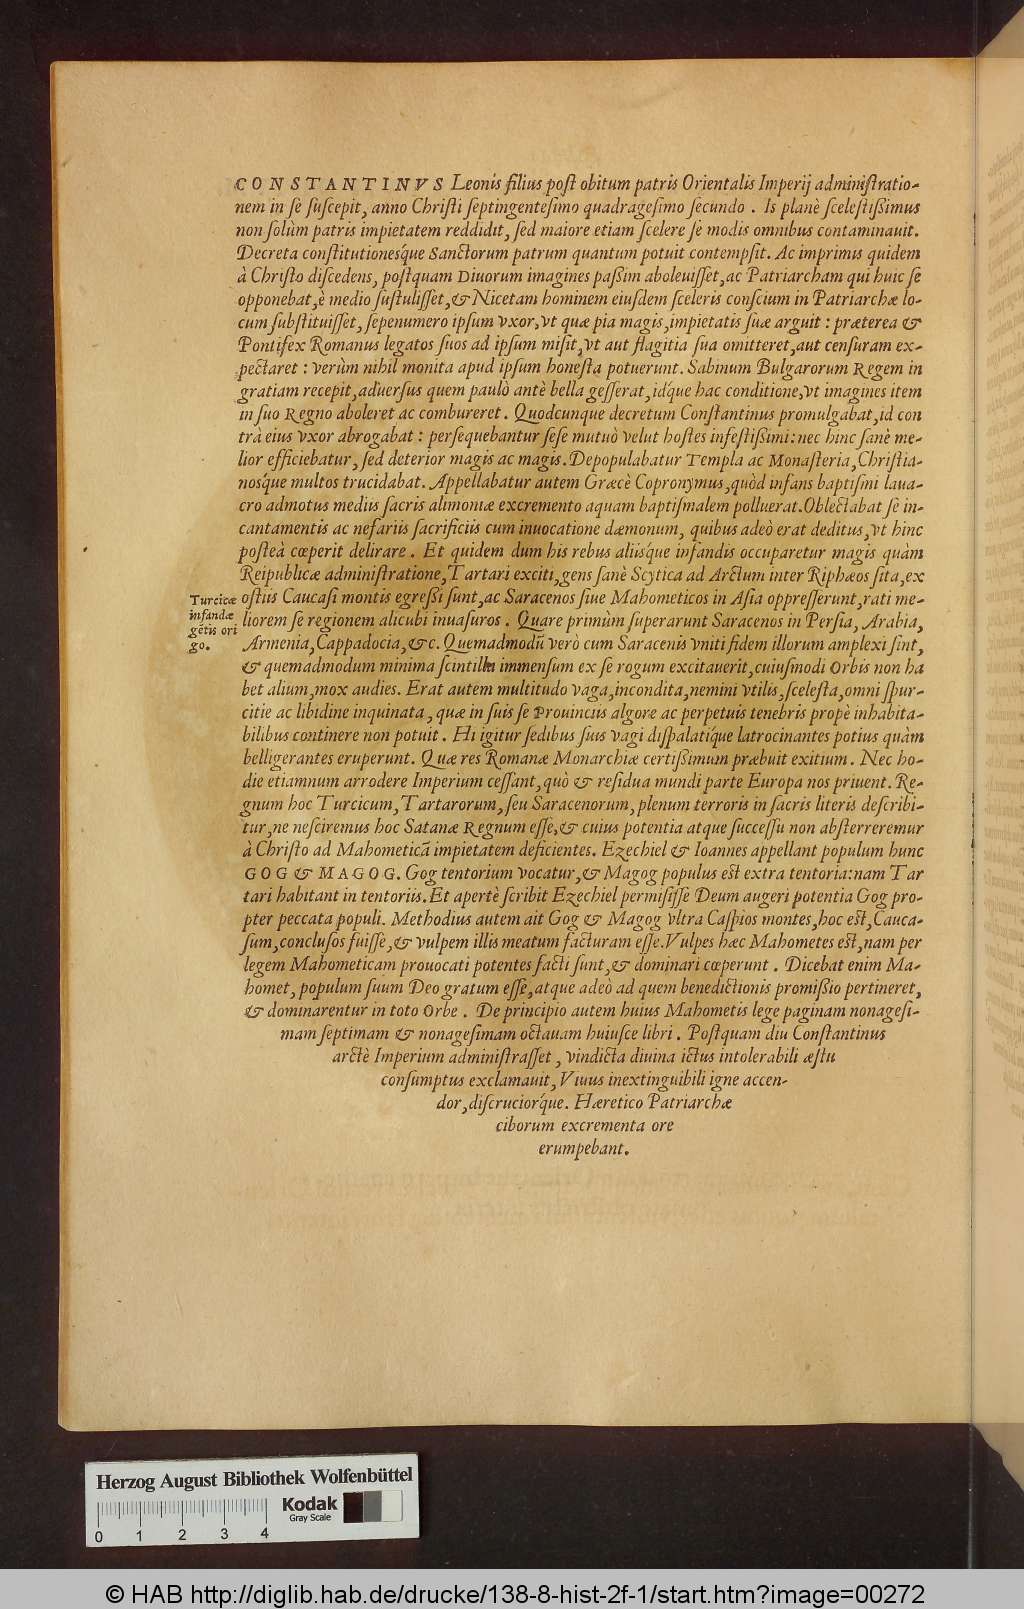 CONSTANTINVS Leonis filius post obitum patris Orientalis Imperij administratio-
nem in se suscepit, anno Christi septingentesimo quadragesimo secundo. Is planè scelestißimus
non solùm patris impietatem reddidit, sed maiore etiam scelere se modis omnibus contaminauit.
Decreta constitutionesq́ue Sanctorum patrum quantum potuit contempsit. Ac imprimis quidem
à Christo discedens, postquam Diuorum imagines paßim aboleuisset, ac Patriarcham qui huic se
opponebat, è medio sustulisset, & Nicetam hominem eiusdem sceleris conscium in Patriarchæ lo-
cum substituisset, sepenumero ipsum vxor, vt quæ pia magis, impietatis suæ arguit: præterea &
Pontifex Romanus legatos suos ad ipsum misit, vt aut flagitia sua omitteret, aut censuram ex-
pectaret: verùm nihil monita apud ipsum honesta potuerunt. Sabinum Bulgarorum Regem in
gratiam recepit, aduersus quem paulò antè bella gesserat, idq́ue hac conditione, vt imagines item
in suo Regno aboleret ac combureret. Quodcunque decretum Constantinus promulgabat, id con
trà eius vxor abrogabat: persequebantur sese mutuò velut hostes infestißimi: nec hinc sanè me-
lior efficiebatur, sed deterior magis ac magis. Depopulabatur Templa ac Monasteria, Christia-
nosq́ue multos trucidabat. Appellabatur autem Græcè Copronymus, quòd infans baptismi laua-
cro admotus mediis sacris alimoniæ excremento aquam baptismalem polluerat. Oblectabat se in-
cantamentis ac nefariis sacrificiis cum inuocatione dæmonum, quibus adeò erat deditus, vt hinc
posteà cœperit delirare. Et quidem dum his rebus aliisque infandis occuparetur magis quàm
Reipublicæ administratione, Tartari exciti, gens sanè Scytica ad Arctum inter Riphæos sita, ex
ostiis Caucasi montis egreßi sunt, ac Saracenos siue Mahometicos in Asia oppresserunt, rati me-
liorem se regionem alicubi inuasuros. Quare primùm superarunt Saracenos in Persia, Arabia,
Armenia, Cappadocia, &c. Quemadmodũ verò cum Saracenis vniti fidem illorum amplexi sint,
& quemadmodum minima scintilla immensum ex se rogum excitauerit, cuiusmodi Orbis non ha
bet alium, mox audies. Erat autem multitudo vaga, incondita, nemini vtilis, scelesta, omni spur-
citie ac libidine inquinata, quæ in suis se Prouinciis algore ac perpetuis tenebris propè inhabita-
bilibus continere non potuit. Hi igitur sedibus suis vagi dispalatiq́ue latrocinantes potius quàm
belligerantes eruperunt. Quæ res Romanæ Monarchiæ certißimum præbuit exitium. Nec ho-
die etiamnum arrodere Imperium cessant, quò & residua mundi parte Europa nos priuent. Re-
gnum hoc Turcicum, Tartarorum, seu Saracenorum, plenum terroris in sacris literis describi-
tur, ne nesciremus hoc Satanæ Regnum esse, & cuius potentia atque successu non absterreremur
à Christo ad Mahometicã impietatem deficientes. Ezechiel & Ioannes appellant populum hunc
GOG & MAGOG. Gog tentorium vocatur, & Magog populus est extra tentoria: nam Tar
tari habitant in tentoriis. Et apertè scribit Ezechiel permisisse Deum augeri potentia Gog pro-
pter peccata populi. Methodius autem ait Gog & Magog vltra Caspios montes, hoc est, Cauca-
sum, conclusos fuisse, & vulpem illis meatum facturam esse. Vulpes hæc Mahometes est, nam per
legem Mahometicam prouocati potentes facti sunt, & dominari cœperunt. Dicebat enim Ma-
homet, populum suum Deo gratum esse, atque adeò ad quem benedictionis promißio pertineret,
& dominarentur in toto Orbe. De principio autem huius Mahometis lege paginam nonagesi-
mam septimam & nonagesimam octauam huiusce libri. Postquam diu Constantinus
arctè Imperium administrasset, vindicta diuina ictus intolerabili æstu
consumptus exclamauit, Viuus inextinguibili igne accen-
dor, discruciorq́ue. Hæretico Patriarchæ
ciborum excrementa ore
erumpebant.
Turcicæ
infandæ
gẽtis ori
go.
Herzog August Bibliothek Wolfenbüttel
Kodak
Gray Scale
0 1 2 3 4
© HAB http://diglib.hab.de/drucke/138-8-hist-2f-1/start.htm?image=00272